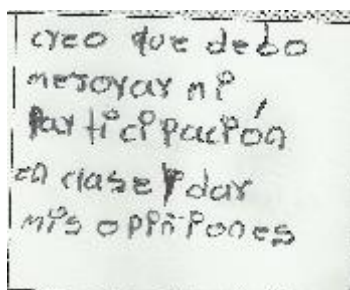 creo que debo
mejorar mi
participación
en clase y dar
mis oppiniones